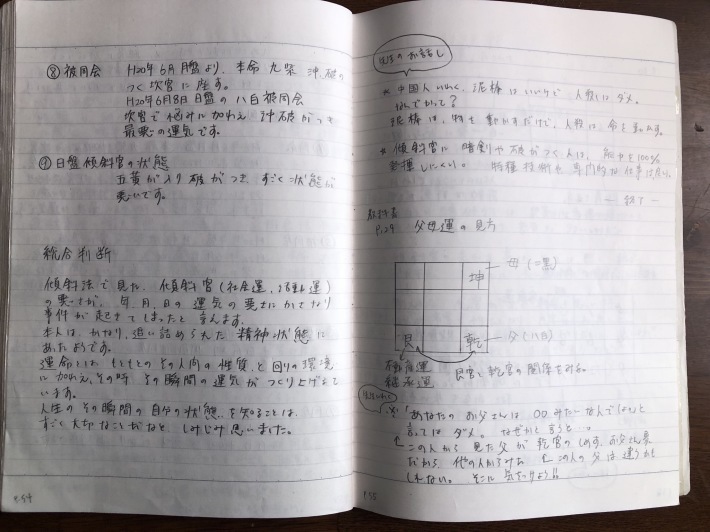 ⑧ 被同会 H20年6月月盤より、本命 九紫 沖、破の
つく坎宮に座す。
H20年6月8日 日盤の 八白 被同会
坎宮で悩みに加え 沖破がつき
最悪の運気です。
⑨ 日盤傾斜宮の状態
五黄が入り 破がつき、すごく状態が
悪いです。
総合判断
傾斜法で見た、傾斜宮(社会運、活動運)
の悪さが、年、月、日の運気の悪さにかさなり
事件が起きてしまったと言えます。
本人は、かなり、追い詰められた 精神状態に
あったようです。
運命とは もともとのその人間の性質、と 回りの環境
に加え、その時 その瞬間の運気が つくり上げて
います。
人生の その瞬間の自分の状態 を知ることは、
すごく大切なことだなと しみじみ思いました。
P.54
先生のお話し
* 中国人いわく、泥棒はいいけど 人殺しはダメ。
なんでかって?
泥棒は、物を動かすだけで、人殺は 命を
* 傾斜宮に 暗剣や破がつく人は、能力を100%
発揮しにくい。 特種技術や専門的な仕事は良い。
― 終了 ―
教科書
P.29 父母運の見方
坤 ― 母(二黒)
艮 乾 ― 父(六白)
不動産運
継承運
艮宮と乾宮の関係をみる。
先生いわく
※「あなたのお父さんは 〇〇みたいなんでしょ」と
言ってはダメ。なぜかと言うと…。
この人から見た父が 乾宮の
だから、他の人からみた この人の父は違うかも
しれない。 そこに気をつけよう!!
P.55